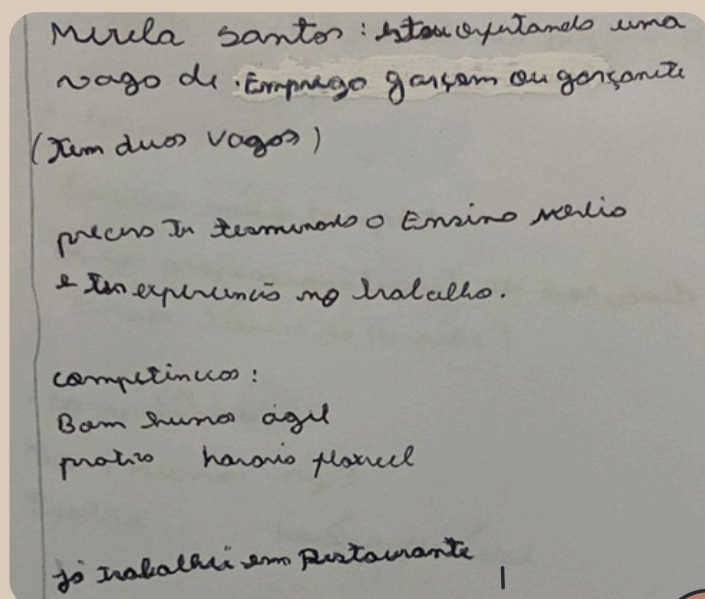 Mirela Santos: estou ofertando uma
vago de Emprego garçom ou garçonete
(Tem duas vagas)
preciso Ter terminado o Ensino Médio
e ter experiencia no trabalho.
competências:
Bom humor ágil
pratico horario flexivel
já trabalhei em Restaurante